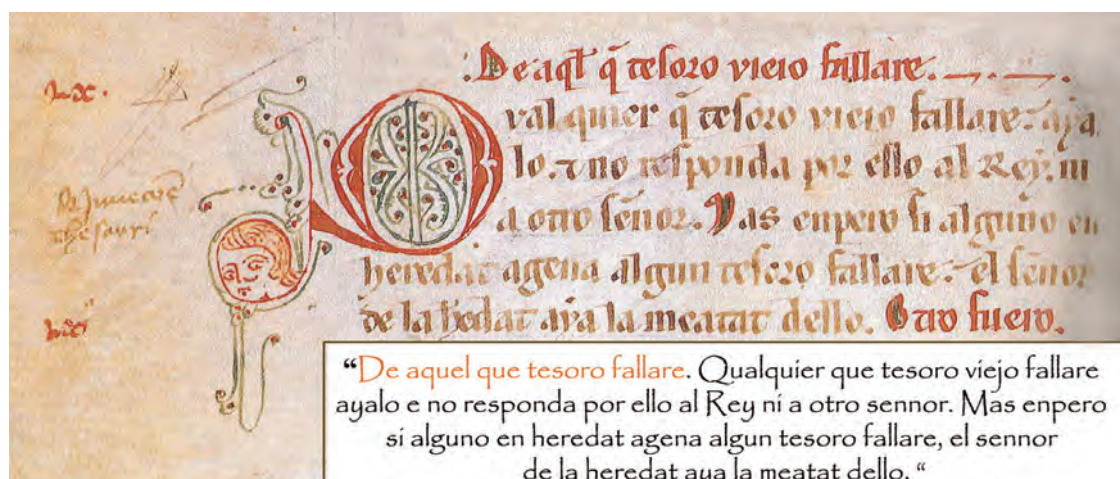 :De aq̃l q̃ tesoro vieio fallare.
Qval quier q̃ tesoro vieio fallare: aya
lo. τ no responda por ello al Rey. ni
a otro señor. Mas enpero si alguno en
heredat agena algun tesoro fallare: el señor
de la h̃edat aya la meatat dello. Otro fuero.
thesauri
“De aquel que tesoro fallare. Qualquier que tesoro viejo fallare
ayalo e no responda por ello al Rey ni a otro sennor. Mas enpero
si alguno en heredat agena algun tesoro fallare, el sennor
de la heredat aya la meatat dello. “